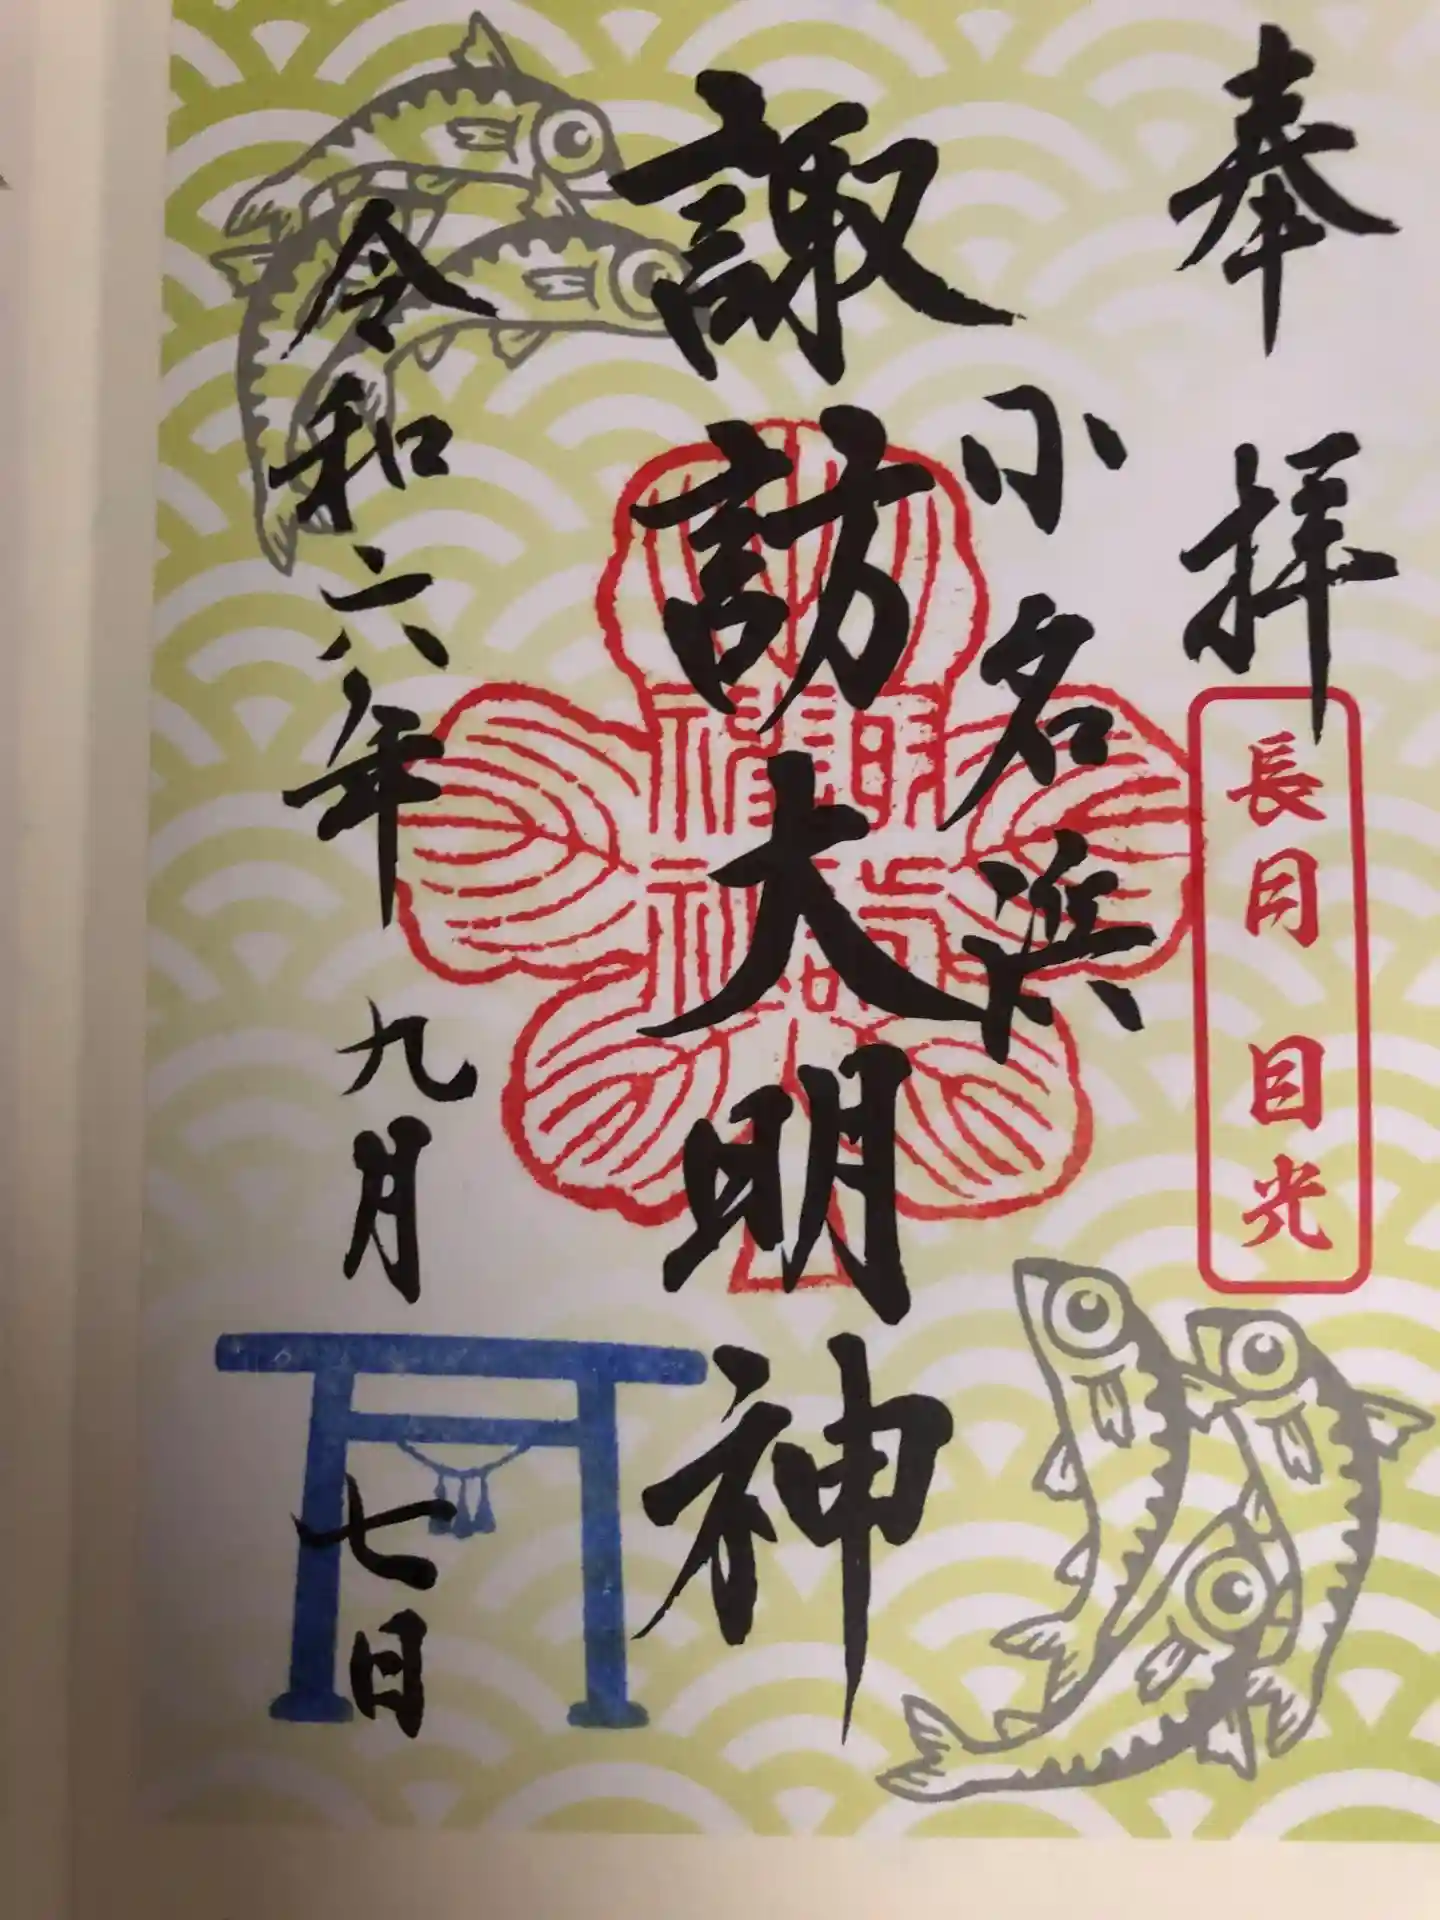 奉拝
長月 目光
小名浜
諏訪大明神
令和六年 九月 七日